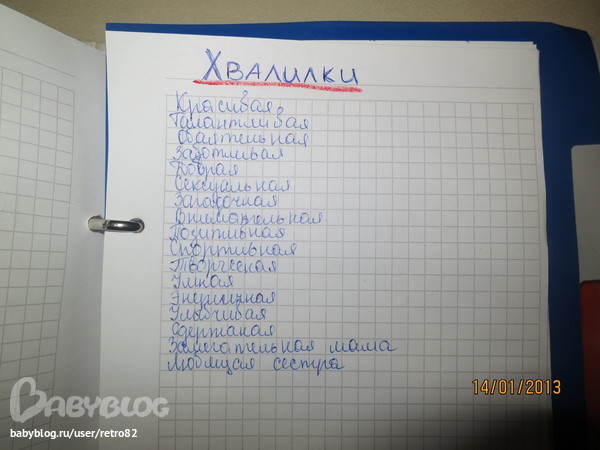 Хвалилки
Красивая
Талантливая
Обаятельная
Заботливая
Добрая
Сексуальная
Загадочная
Внимательная
Позитивная
Спортивная
Творческая
Умная
Энергичная
Улыбчивая
Сдержаная
Замечательная мама
Любящая сестра
14/01/2013
BABYBLOG
babyblog.ru/user/retro82